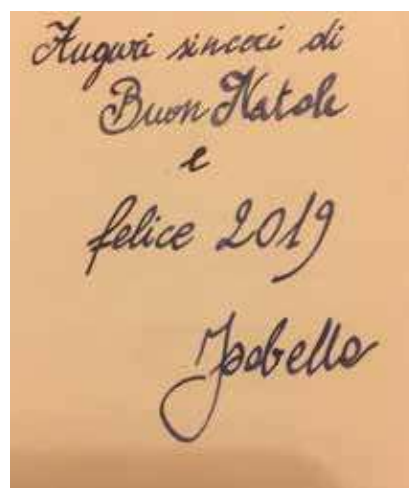 Auguri sinceri di
Buon Natale
e
felice 2019
Isabella